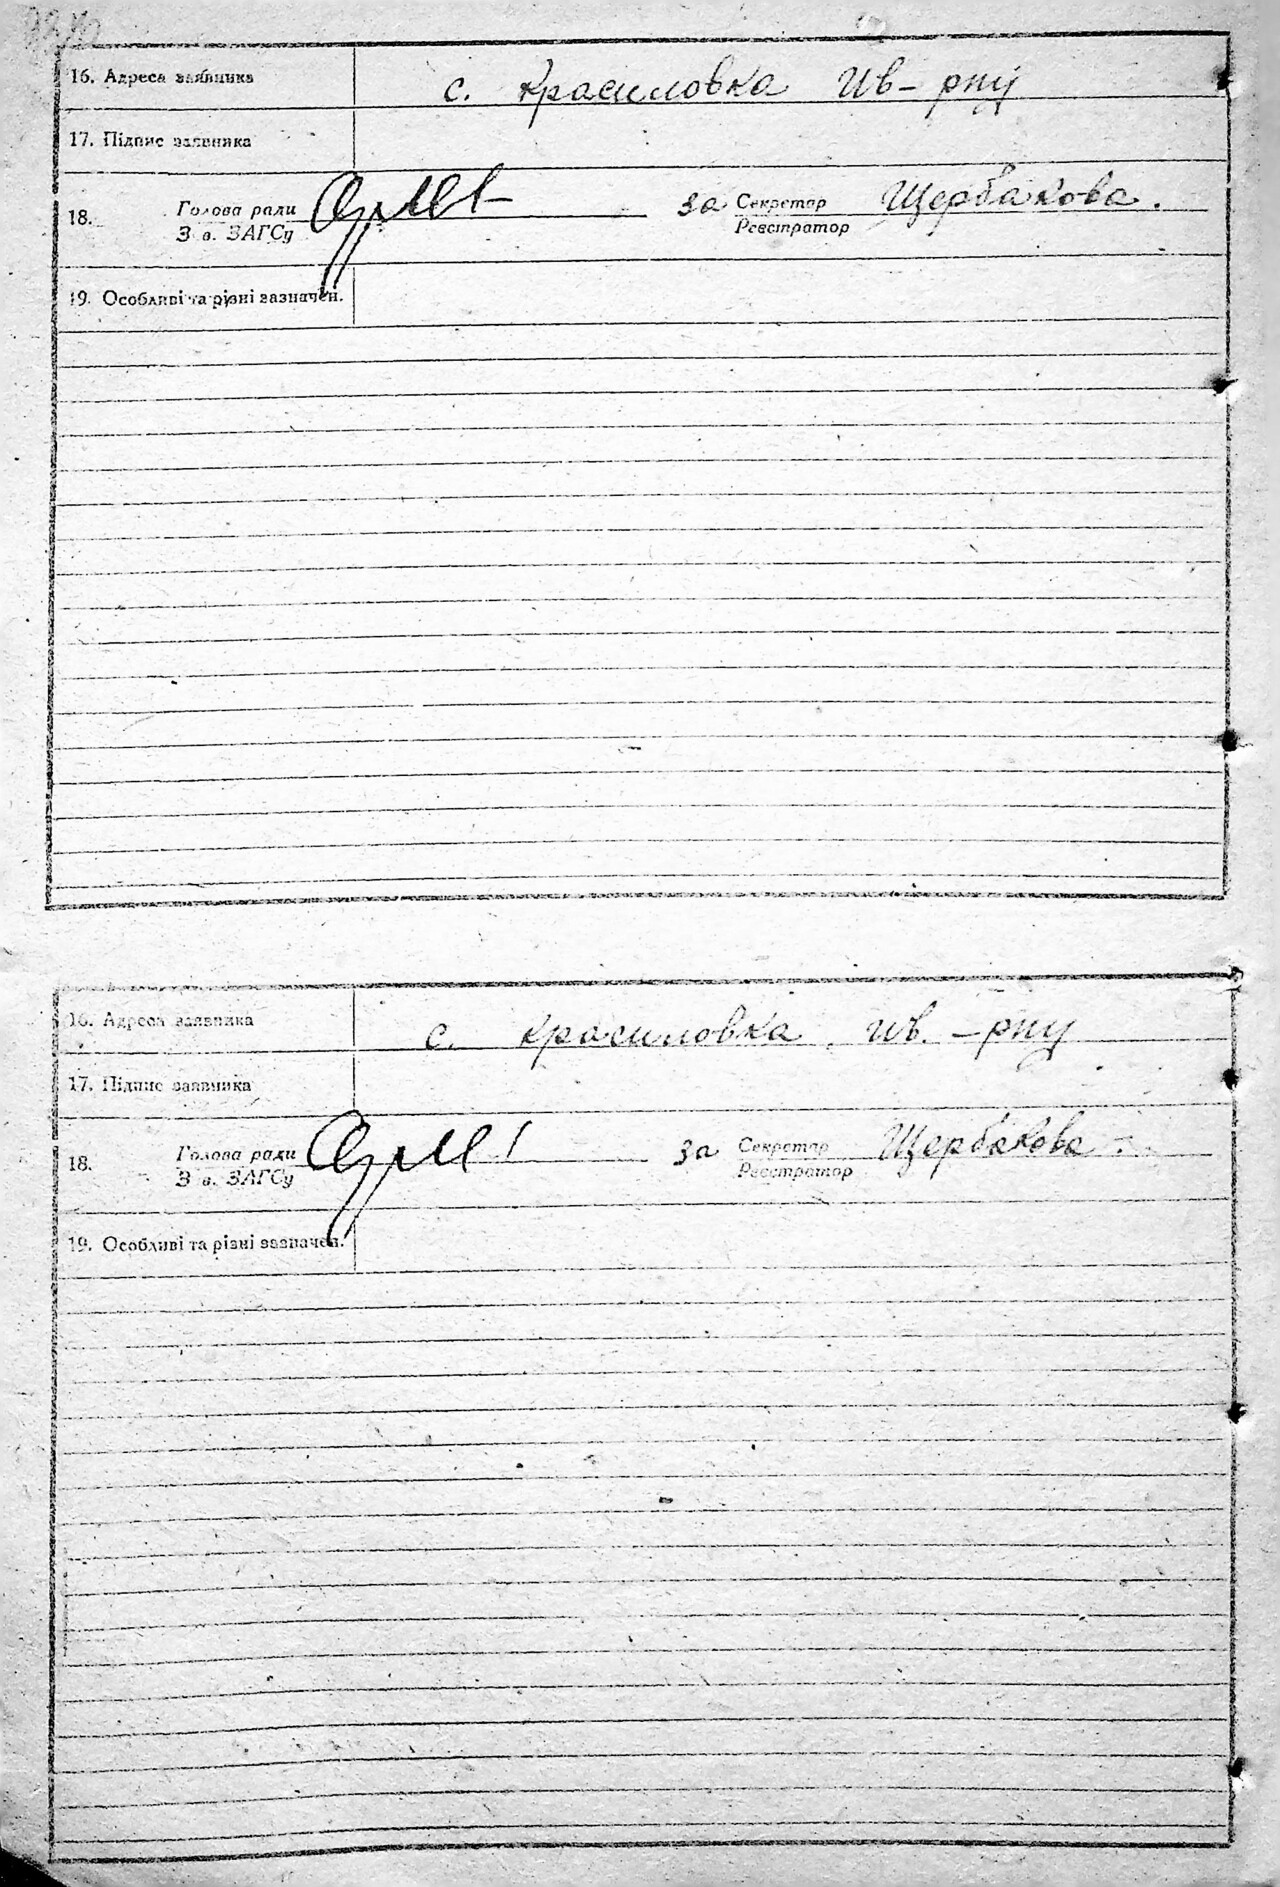 16. Адреса заявника с. Красиловка Ив- рну
17. Підпис заявника
18. Голова ради За Секретар Щербакова.
З в. ЗАГСу Реєстратор
19. Особливі та різні зазначен.
16. Адреса заявника с. Красиловка Ив. - рну
17. Підпис заявника
18. Голова ради За Секретар Щербакова
З в. ЗАГСу Реєстратор
19. Особливі та різні зазначен.